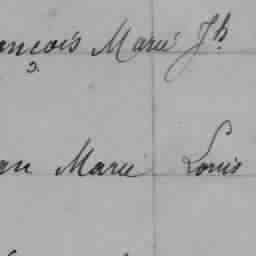 ançois Marie Jh
an Marie Louis